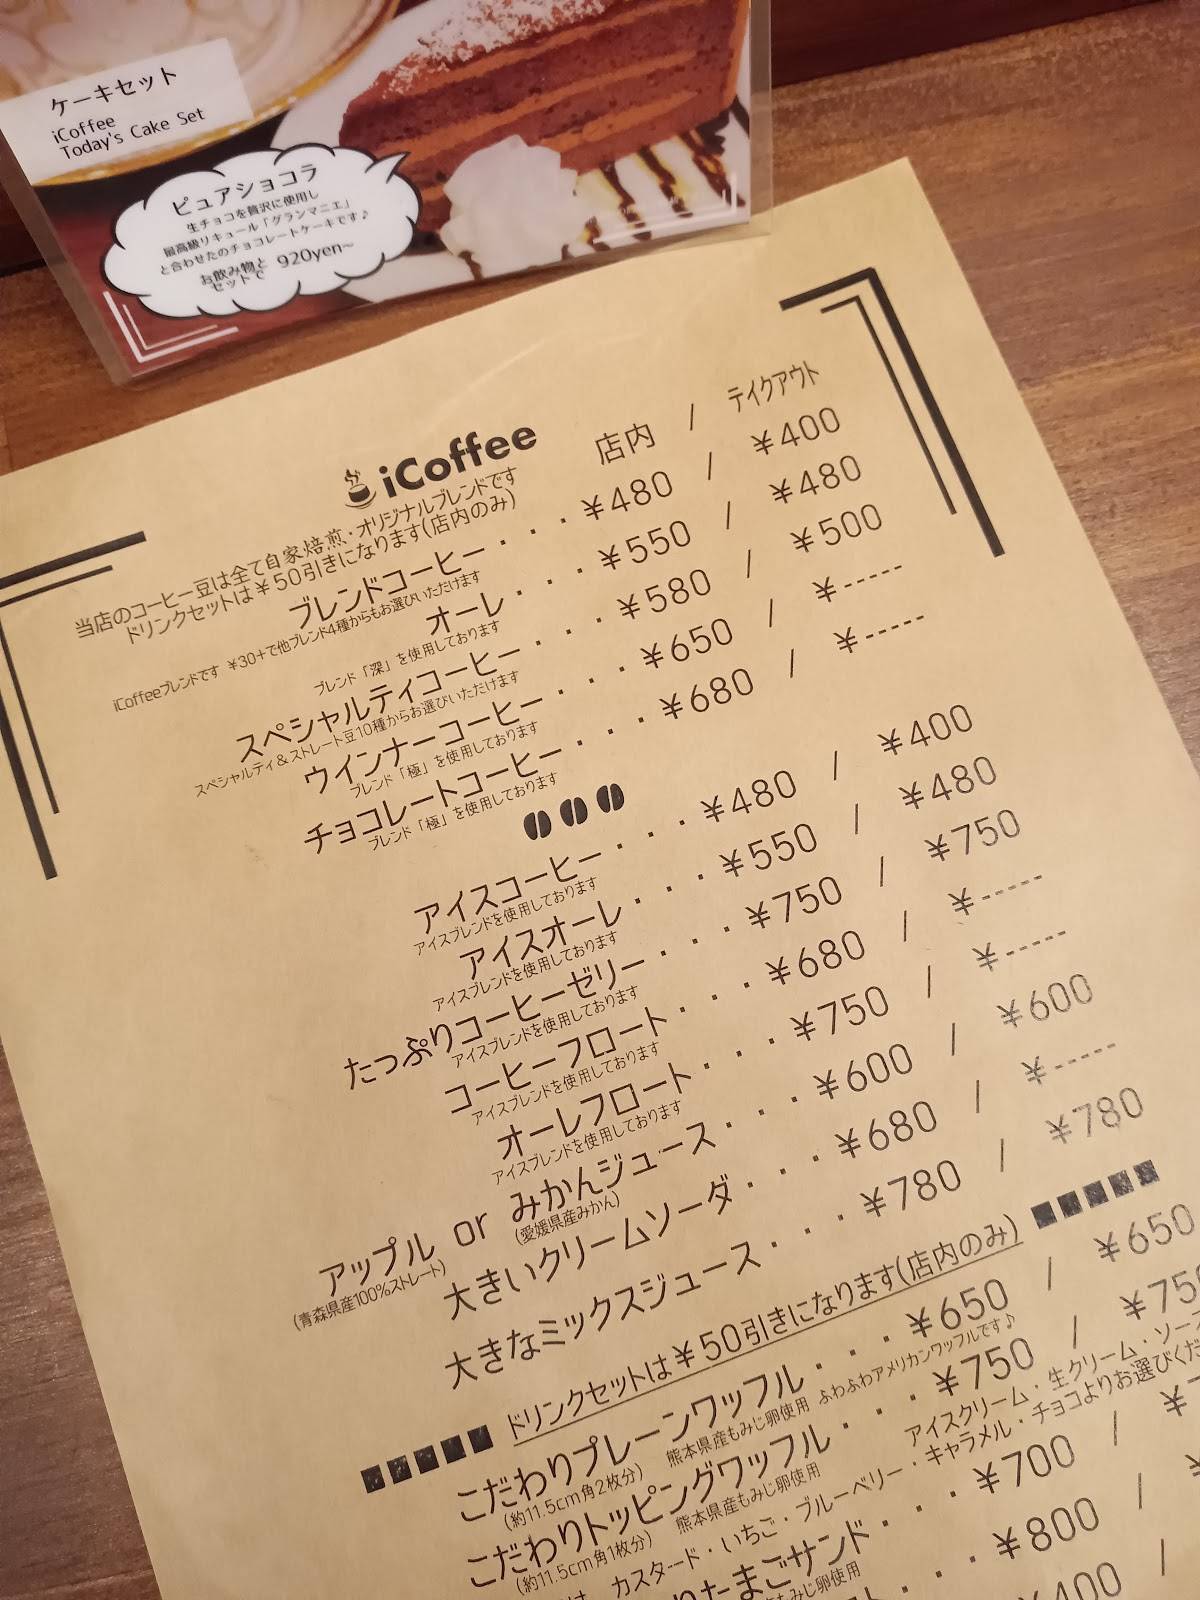 ケーキセット
iCoffee
Today's Cake Set
ピュアショコラ
生チョコを贅沢に使用し
最高級リキュール「グランマニエ」
と合わせたのチョコレートケーキです♪
お飲み物と
セットで 920yen~
iCoffee
店内 / テイクアウト
当店のコーヒー豆は全て自家焙煎・オリジナルブレンドです
ドリンクセットは¥50引きになります(店内のみ)
ブレンドコーヒー・・・¥480 / ¥400
iCoffeeブレンドです ¥30+で他ブレンド4種からもお選びいただけます
オーレ・・・¥550 / ¥480
ブレンド「深」を使用しております
スペシャルティコーヒー・・・¥580 / ¥500
スペシャルティ&ストレート豆10種からお選びいただけます
ウインナーコーヒー・・・¥650 / ¥-----
ブレンド「極」を使用しております
チョコレートコーヒー・・・¥680 / ¥-----
ブレンド「極」を使用しております
アイスコーヒー・・・¥480 / ¥400
アイスブレンドを使用しております
アイスオーレ・・・¥550 / ¥480
アイスブレンドを使用しております
たっぷりコーヒーゼリー・・・¥750 / ¥750
アイスブレンドを使用しております
コーヒーフロート・・・¥680 / ¥-----
アイスブレンドを使用しております
オーレフロート・・・¥750 / ¥-----
アイスブレンドを使用しております
アップル or みかんジュース・・・¥600 / ¥600
(青森県産100%ストレート) (愛媛県産みかん)
大きいクリームソーダ・・・¥680 / ¥-----
大きなミックスジュース・・・¥780 / ¥780
ドリンクセットは¥50引きになります(店内のみ)
こだわりプレーンワッフル・・・¥650 / ¥650
(約11.5cm角2枚分) 熊本県産もみじ卵使用 ふわふわアメリカンワッフルです♪
こだわりトッピングワッフル・・・¥750 / ¥750
(約11.5cm角1枚分) 熊本県産もみじ卵使用
アイスクリーム・生クリーム・ソース
カスタード・いちご・ブルーベリー・キャラメル・チョコよりお選びくだ
りたまごサンド・・・¥700 / ¥-
もみじ卵使用
¥800 / ¥
¥400 /